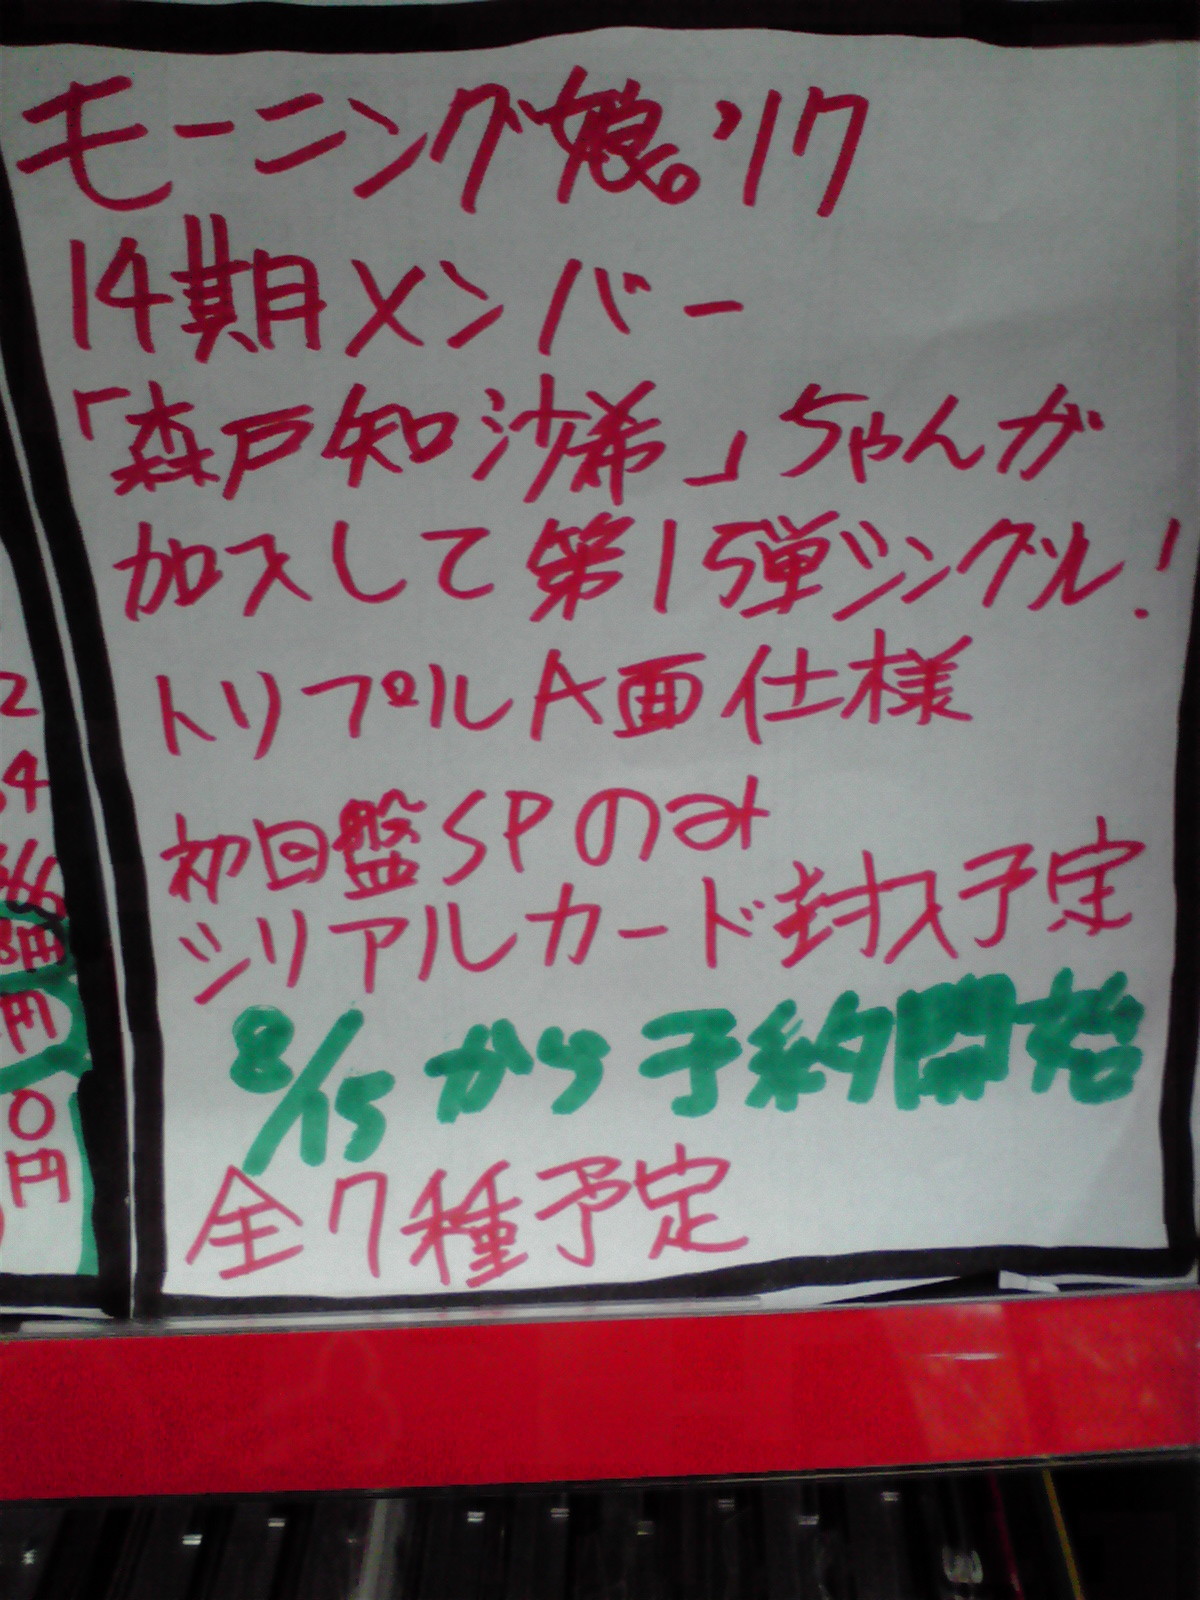 モーニング娘。'17
14期メンバー
「森戸知沙希」ちゃんが
加入して第15弾シングル!
トリプルA面仕様
初回盤SPのみ
シリアルカード封入予定
8/15から予約開始
全7種予定
2
4
66
8円
円
0
円